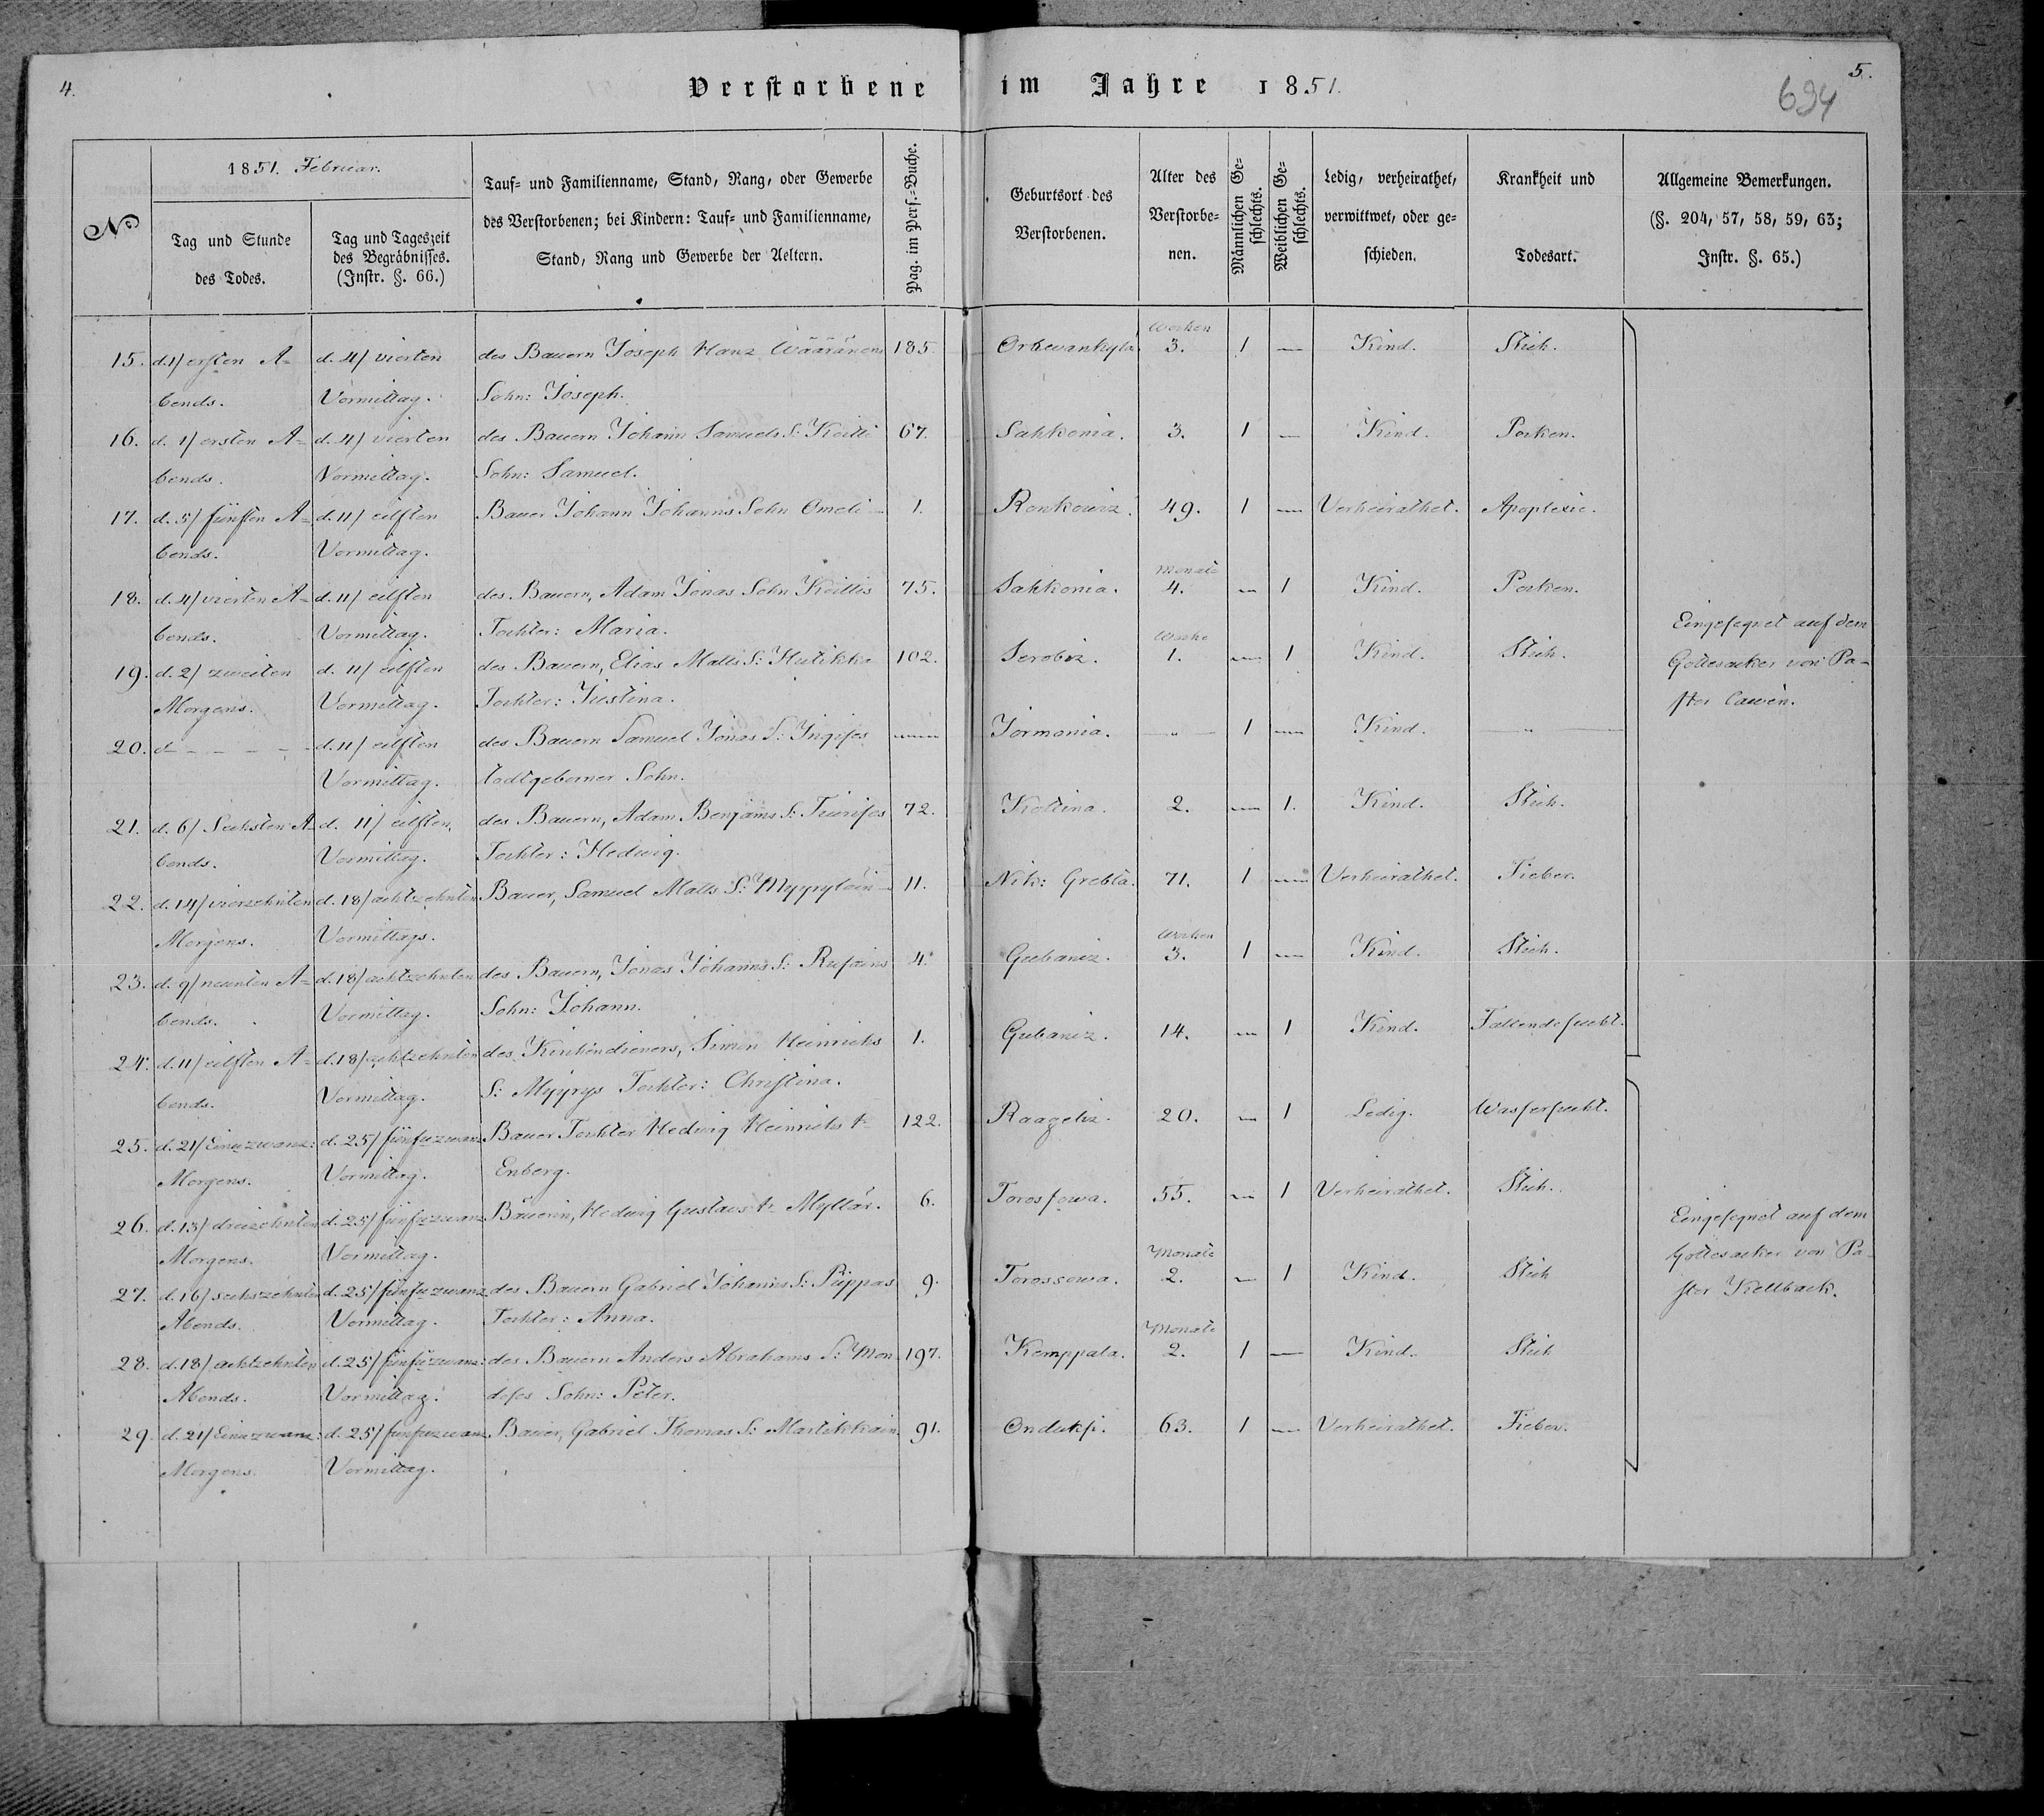 4.
Verstorbene im Jahre 1851.
5.
694
No
1851. Februar.
Tag und Stunde
des Todes.
Tag und Tageszeit
des Begräbnisses.
(Instr. §. 66.)
Tauf- und Familienname, Stand, Rang, oder Gewerbe
des Verstorbenen; bei Kindern: Tauf- und Familienname,
Stand, Rang und Gewerbe der Aeltern.
Pag. im Pers.-Buche.
Geburtsort des
Verstorbenen.
Alter des
Verstorbe-
nen.
Männlichen Ge-
schlechts.
Weiblichen Ge-
schlechts.
Ledig, verheirathet,
verwittwet, oder ge-
schieden.
Krankheit und
Todesart.
Allgemeine Bemerkungen.
(§. 204, 57, 58, 59, 63;
Instr. §. 65.)
Wochen
15. d. 1/ ersten A- d. 4/ vierten des Bauern Joseph Hanz Wääränens 185. 3. 1 — Kind. Stich.
bends. Vormittag. Sohn: Joseph.
16. d. 1/ ersten A- d. 4/ vierten des Bauern Johann Samuels S: Koitti 67. Sahkonia. 3. 1 — Kind. Pocken.
bends. Vormittag. Sohn: Samuel.
17. d. 5/ fünften A- d. 11/ eilften Bauer Johann Johanns Sohn Omeli 1. Ronkowiz. 49. 1 — Verheirathet. Apoplexie.
bends. Vormittag.
Monate
18. d. 4/ vierten A- d. 11/ eilften des Bauern, Adam Jonas Sohn Koittis 75. Sahkonia. 4. — 1 Kind. Pocken.
bends. Vormittag. Tochter: Maria.
Woche
19. d. 2/ zweiten d. 11/ eilften des Bauern, Elias Matts S: Hutikka 102. Serobiz. 1. — 1 Kind. Stich.
Morgens. Vormittag. Tochter: Justina.
20. d - - - - - d. 11/ eilften des Bauern Samuel Jonas S: — Jormania. — " — 1 — Kind. — " —
Vormittag. todtgeborner Sohn.
21. d. 6/ Sechsten A- d. 11/ eilften des Bauern, Adam Benjams S: 72. Kottina. 2. — 1. Kind. Stich.
bends. Vormittag. Tochter: Hedwig.
22. d. 14/ vierzehnten d. 18/ achtzehnten Bauer, Samuel Matts S: 11. Nik: Grebla. 71. 1 — Verheirathet. Fieber.
Morgens. Vormittags.
Wochen
23. d. 9/ neunten A- d. 18/ achtzehnten des Bauern, Jonas Johanns S: 4. Gubaniz. 3. 1 — Kind. Stich.
bends. Vormittag. Sohn: Johann.
24. d. 11/ eilften A- d. 18/ achtzehnten des Kirchendieners, Simon Heinrichs 1. Gubaniz. 14. — 1 Kind. Fallendesucht.
bends. Vormittag. S: Myyrys Tochter: Christina.
25. d. 21/ Einuzwanz: d. 25/ fünfuzwanz Bauer Tochter Hedwig Heinrichs tr 122. Raageliz. 20. — 1 Ledig. Wassersucht.
Morgens. Vormittag. Enberg.
26. d. 13/ dreizehnten d. 25/ fünfuzwanz Bäuerin, Hedwig Gustavs tr Myllär. 6. Torossowa. 55. — 1 Verheirathet. Stich.
Morgens. Vormittag.
Monate
27. d. 16/ sechszehnten d. 25/ fünfuzwanz des Bauern Gabriel Johanns S: Püppas 9. Torossowa. 2. — 1 Kind. Stich
Abends. Vormittag. Tochter: Anna.
Monate
28. d. 18/ achtzehnten d. 25/ fünfuzwanz: des Bauern Anders Abrahams S: Mon 197. Kemppala. 2. 1 — Kind. Stich
Abends. Vormittag. deses Sohn: Peter.
29. d. 21/ Einuzwanz: d. 25/ fünfuzwanz Bauer, Gabriel Thomas S: Martikkain 91. Onduksi. 63. 1 — Verheirathet. Fieber.
Morgens. Vormittag.
Eingesegnet auf dem
Gottesacker von Pa-
stor Cawén.
Eingesegnet auf dem
Gottesacker von Pa-
stor Kellback.